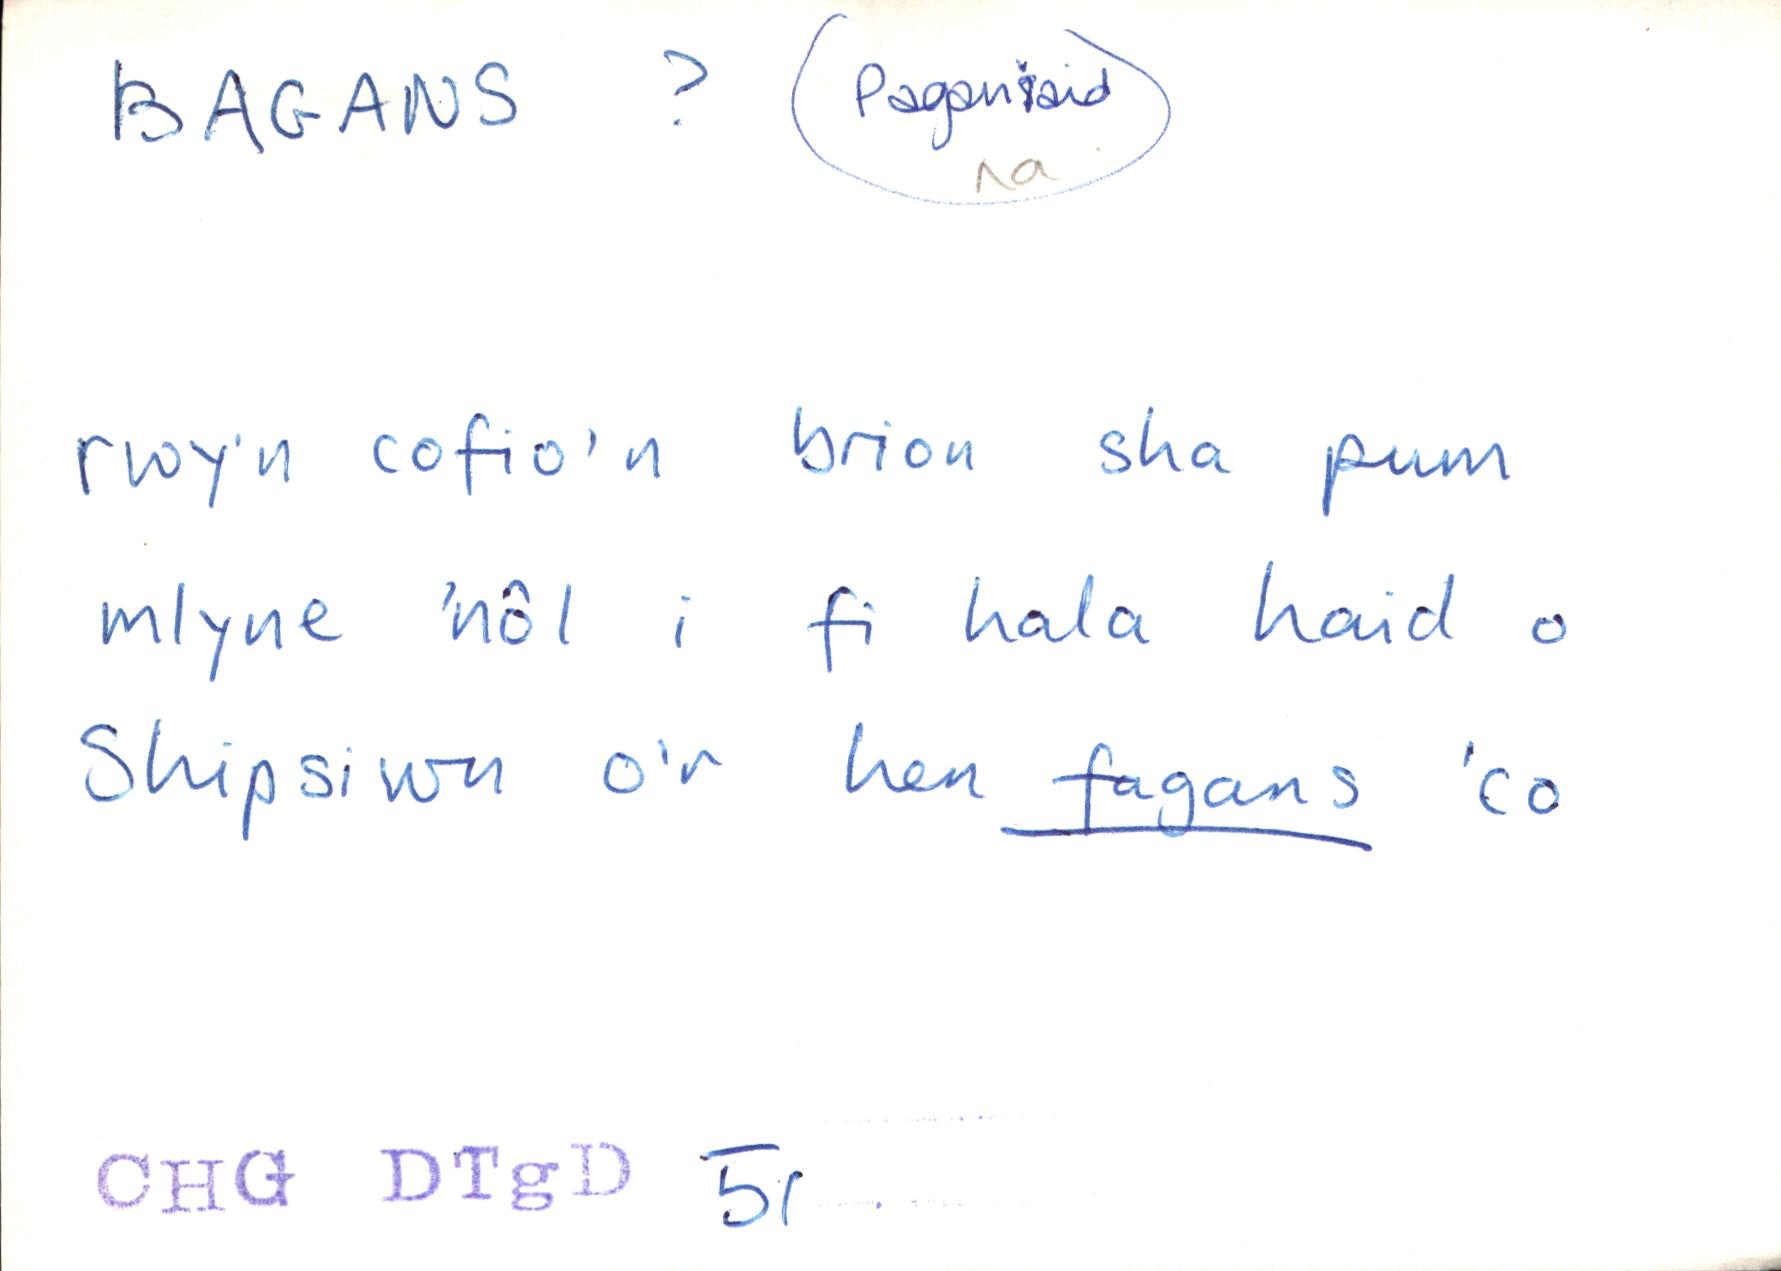 BAGANS ? (Paganiaid)
na
rwy'n cofio'n brion sha pum
mlyne 'nôl i fi hala haid o
Shipsiwn o'r hen fagans 'co
CHG DTgD 51